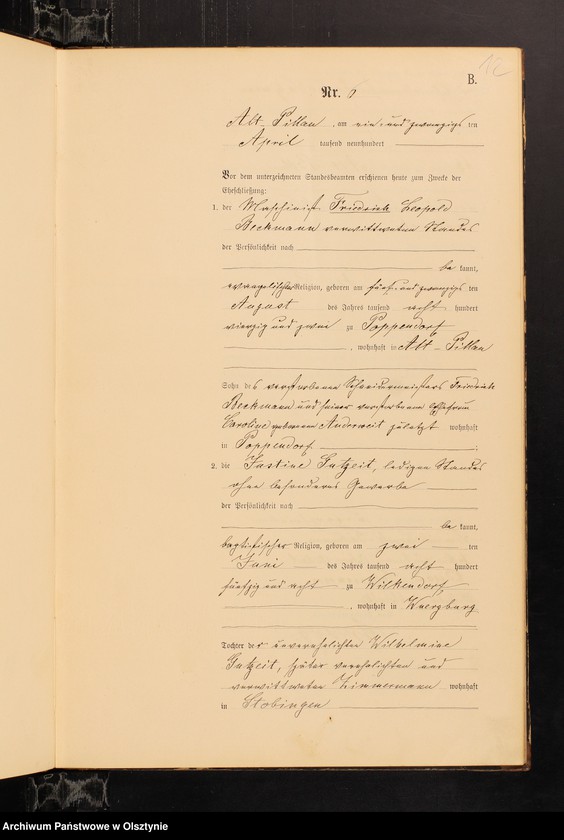 B.
Nr. 6
Alt-Pillau, am ein und zwanzigsten
April tausend neunhundert
Vor dem unterzeichneten Standesbeamten erschienen heute zum Zwecke der
Eheschließung:
1. der Maschinist Friedrich Leopold
Beckmann verwittweten Standes
der Persönlichkeit nach
be kannt,
evangelischer Religion, geboren am fünf und zwanzigsten
August des Jahres tausend acht hundert
vierzig und zwei zu Poppendorf
, wohnhaft in Alt-Pillau
Sohn des verstorbenen Schneidermeisters Friedrich
Beckmann und seiner verstorbenen Ehefrau
Caroline geborenen Anderweit zuletzt wohnhaft
in Poppendorf
2. die Justine Gutzeit, ledigen Standes
ohne besonderes Gewerbe
der Persönlichkeit nach
be kannt,
baptistischer Religion, geboren am zwei ten
Juni des Jahres tausend acht hundert
fünfzig und acht zu Wilkendorf
, wohnhaft in
Tochter der unverehelichten Wilhelmine
Gutzeit, später verehelichten und
verwittweten Zimmermann wohnhaft
in Stobingen
Archiwum Państwowe w Olsztynie